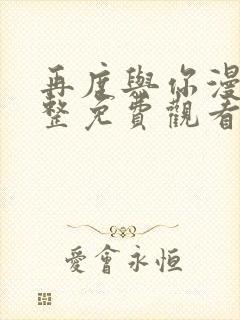 再度與你漫
整免費觀看
愛會永恒